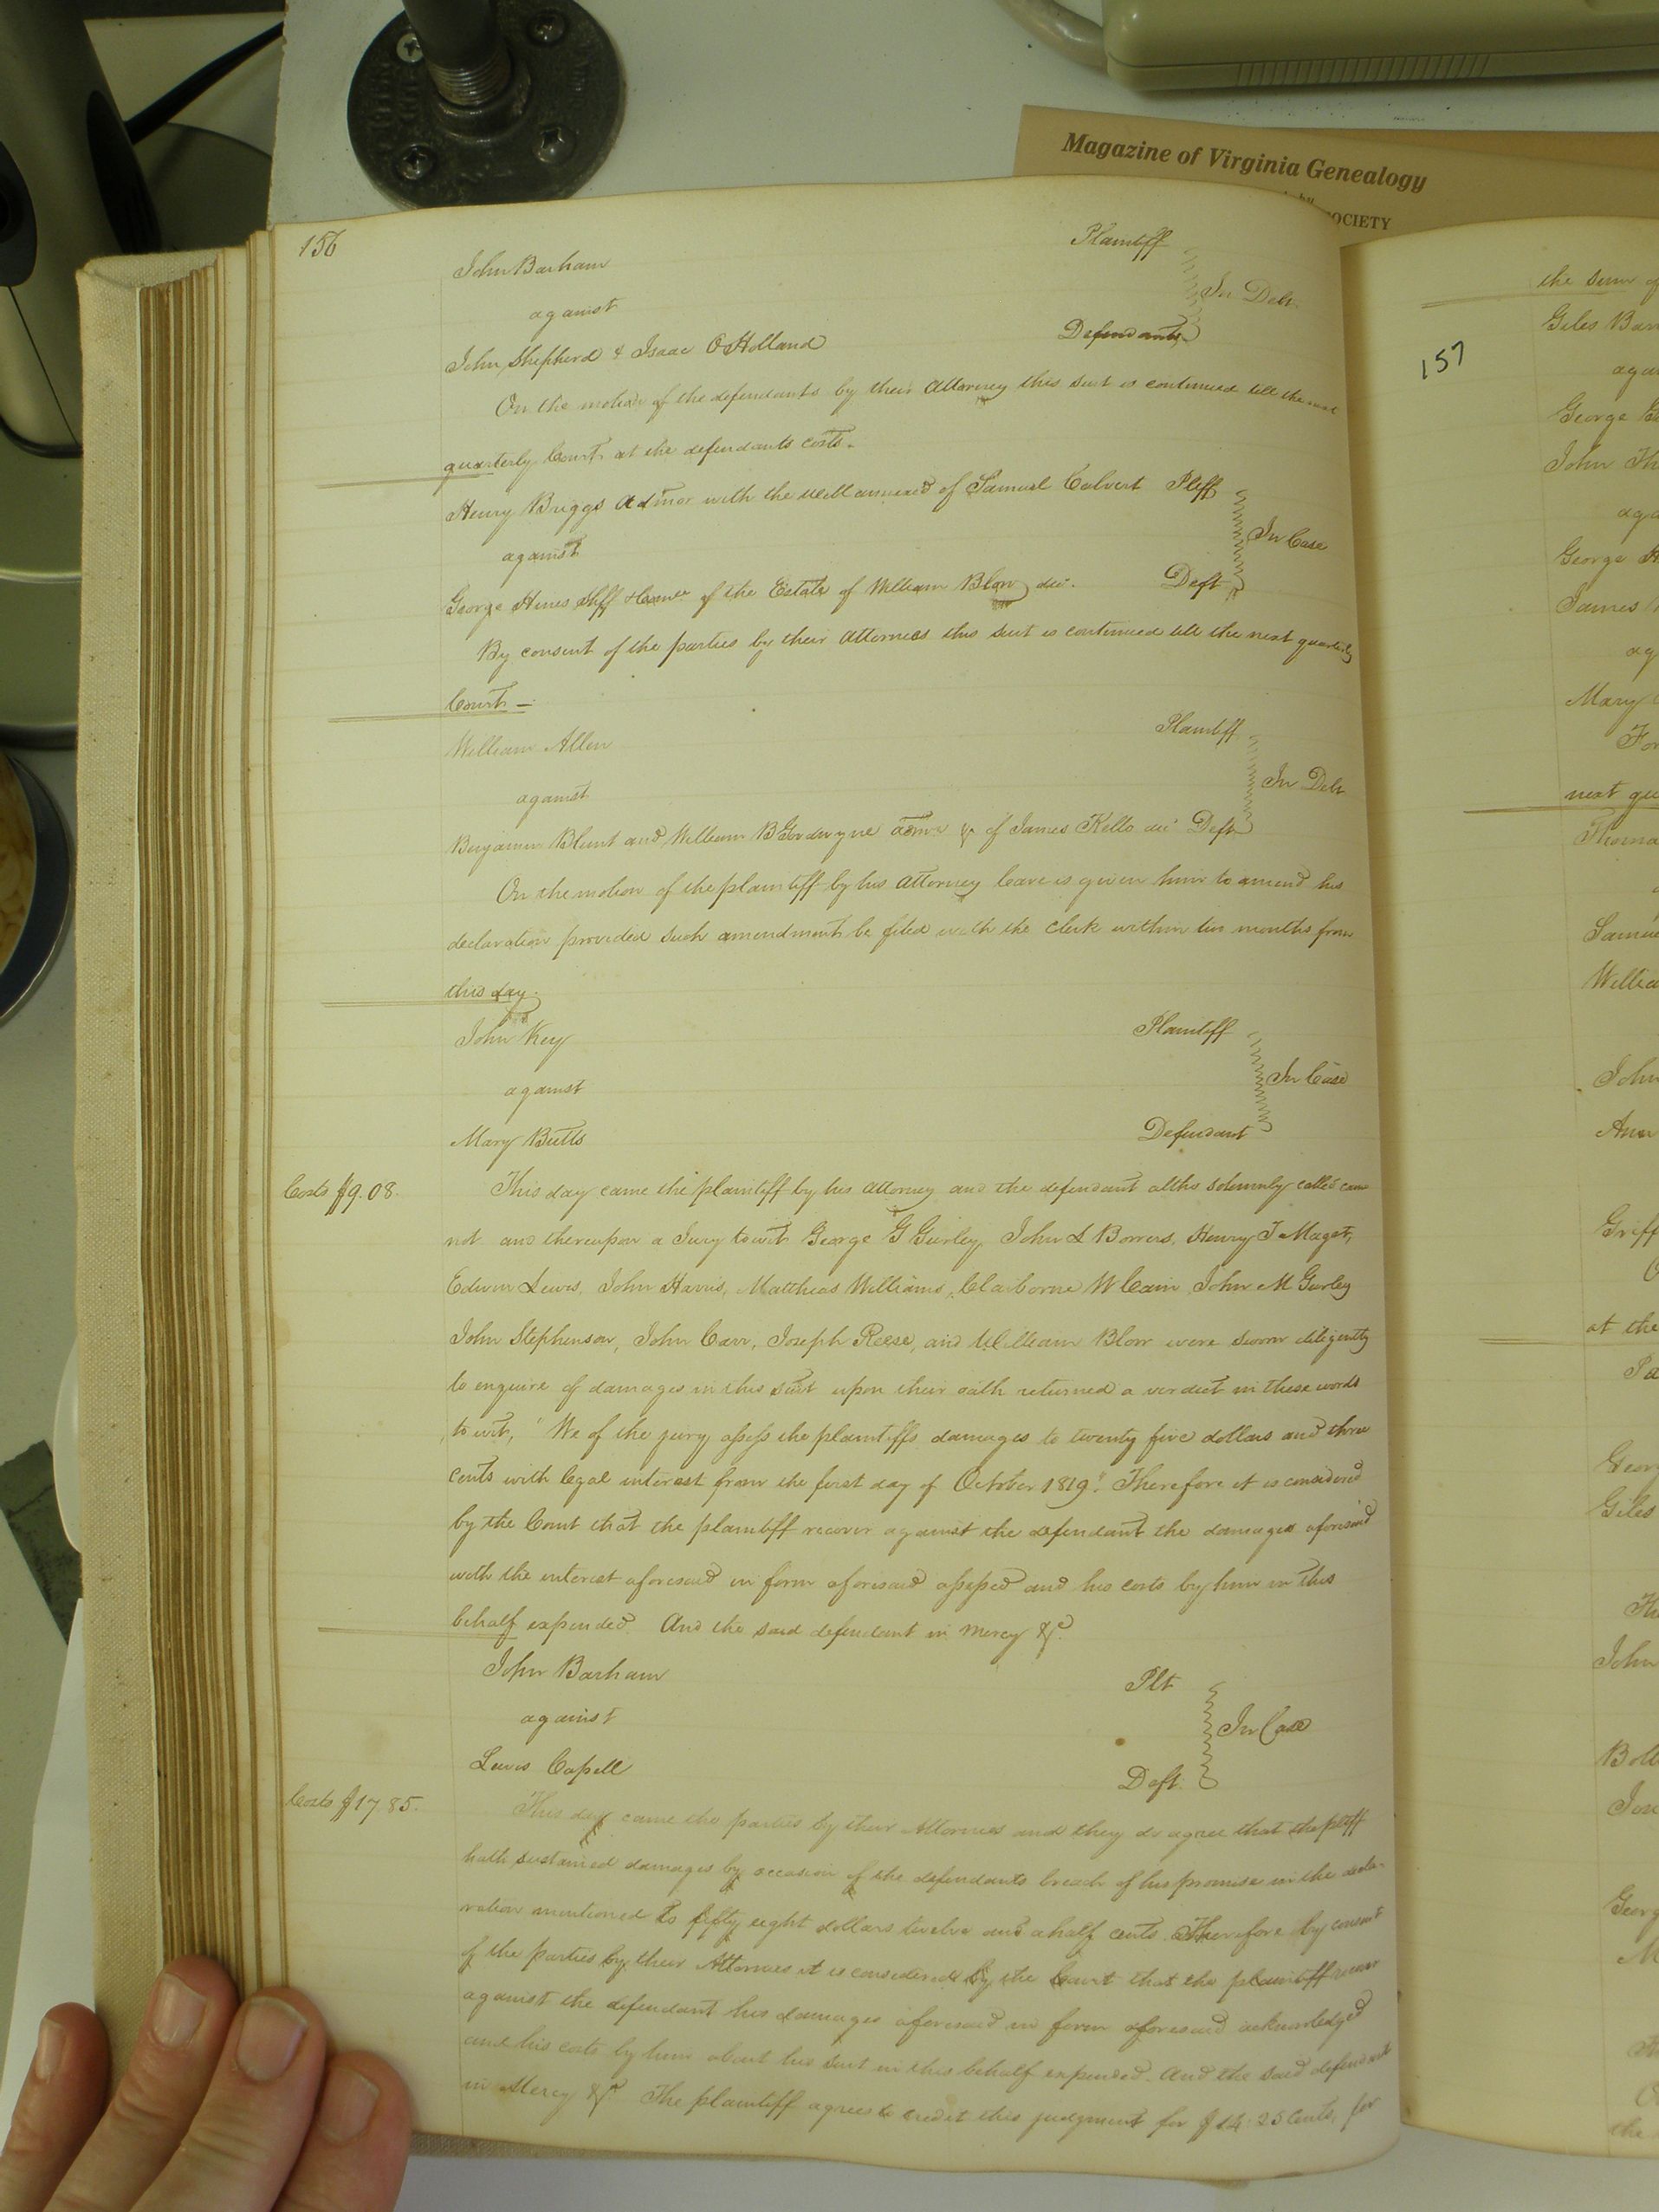 Magazine of Virginia Genealogy
OCIETY
156
John Barham Plaintiff
against In Debt
John Shepherd & Isaac O Holland Defendants
On the motion of the defendants by their Attorney this suit is continued till the next
quarterly Court at the defendants costs.
Henry Briggs admor with the will annexed of Samuel Calvert Pltff
against In Case
George Hines Shff & Comee of the Estate of William Blow dec. Deft
By consent of the parties by their attornies this suit is continued till the next quarterly
Court —
William Allen Plaintiff
against In Debt
Benjamin Blunt and William B Goodwyne admr &c of James Kello dec Defts
On the motion of the plaintiff by his attorney leave is given him to amend his
declaration provided such amendment be filed with the Clerk within two months from
this day.
John Key Plaintiff
against In Case
Mary Butts Defendant
Costs $9.08.
This day came the plaintiff by his attorney and the defendant altho solemnly called came
not and thereupon a Jury towit George G Gurley, John L Bowers, Henry J Maget,
Edwin Lewis, John Harris, Matthias Williams, Claiborne W Cain, John M Gurley
John Stephenson, John Carr, Joseph Reese, and William Blow were sworn diligently
to enquire of damages in this suit upon their oath returned a verdict in these words
to wit, "We of the jury assess the plaintiffs damages to twenty five dollars and three
cents with legal interest from the first day of October 1819". Therefore it is considered
by the Court that the plaintiff recover against the defendant the damages aforesaid
with the interest aforesaid in form aforesaid assessed and his costs by him in this
behalf expended. And the said defendant in mercy &c.
John Barham Plt
against In Case
Lewis Capell Deft.
Costs $17.85.
This day came the parties by their Attornies and they do agree that the pltff
hath sustained damages by occasion of the defendants breach of his promise in the decla-
ration mentioned to fifty eight dollars twelve and a half cents. Therefore by consent
of the parties by their Attornies it is considered by the Court that the plaintiff recover
against the defendant his damages aforesaid in form aforesaid acknowledged
and his costs by him about his suit in this behalf expended. And the said defendant
in Mercy &c. The plaintiff agrees to credit this judgment for $14.25 Cents, for
157
the sum of
Giles
George
John
George
James
Mary
next
Thoma
William
John
Ann
Griff
at the
Geor
Giles
John
Georg
the